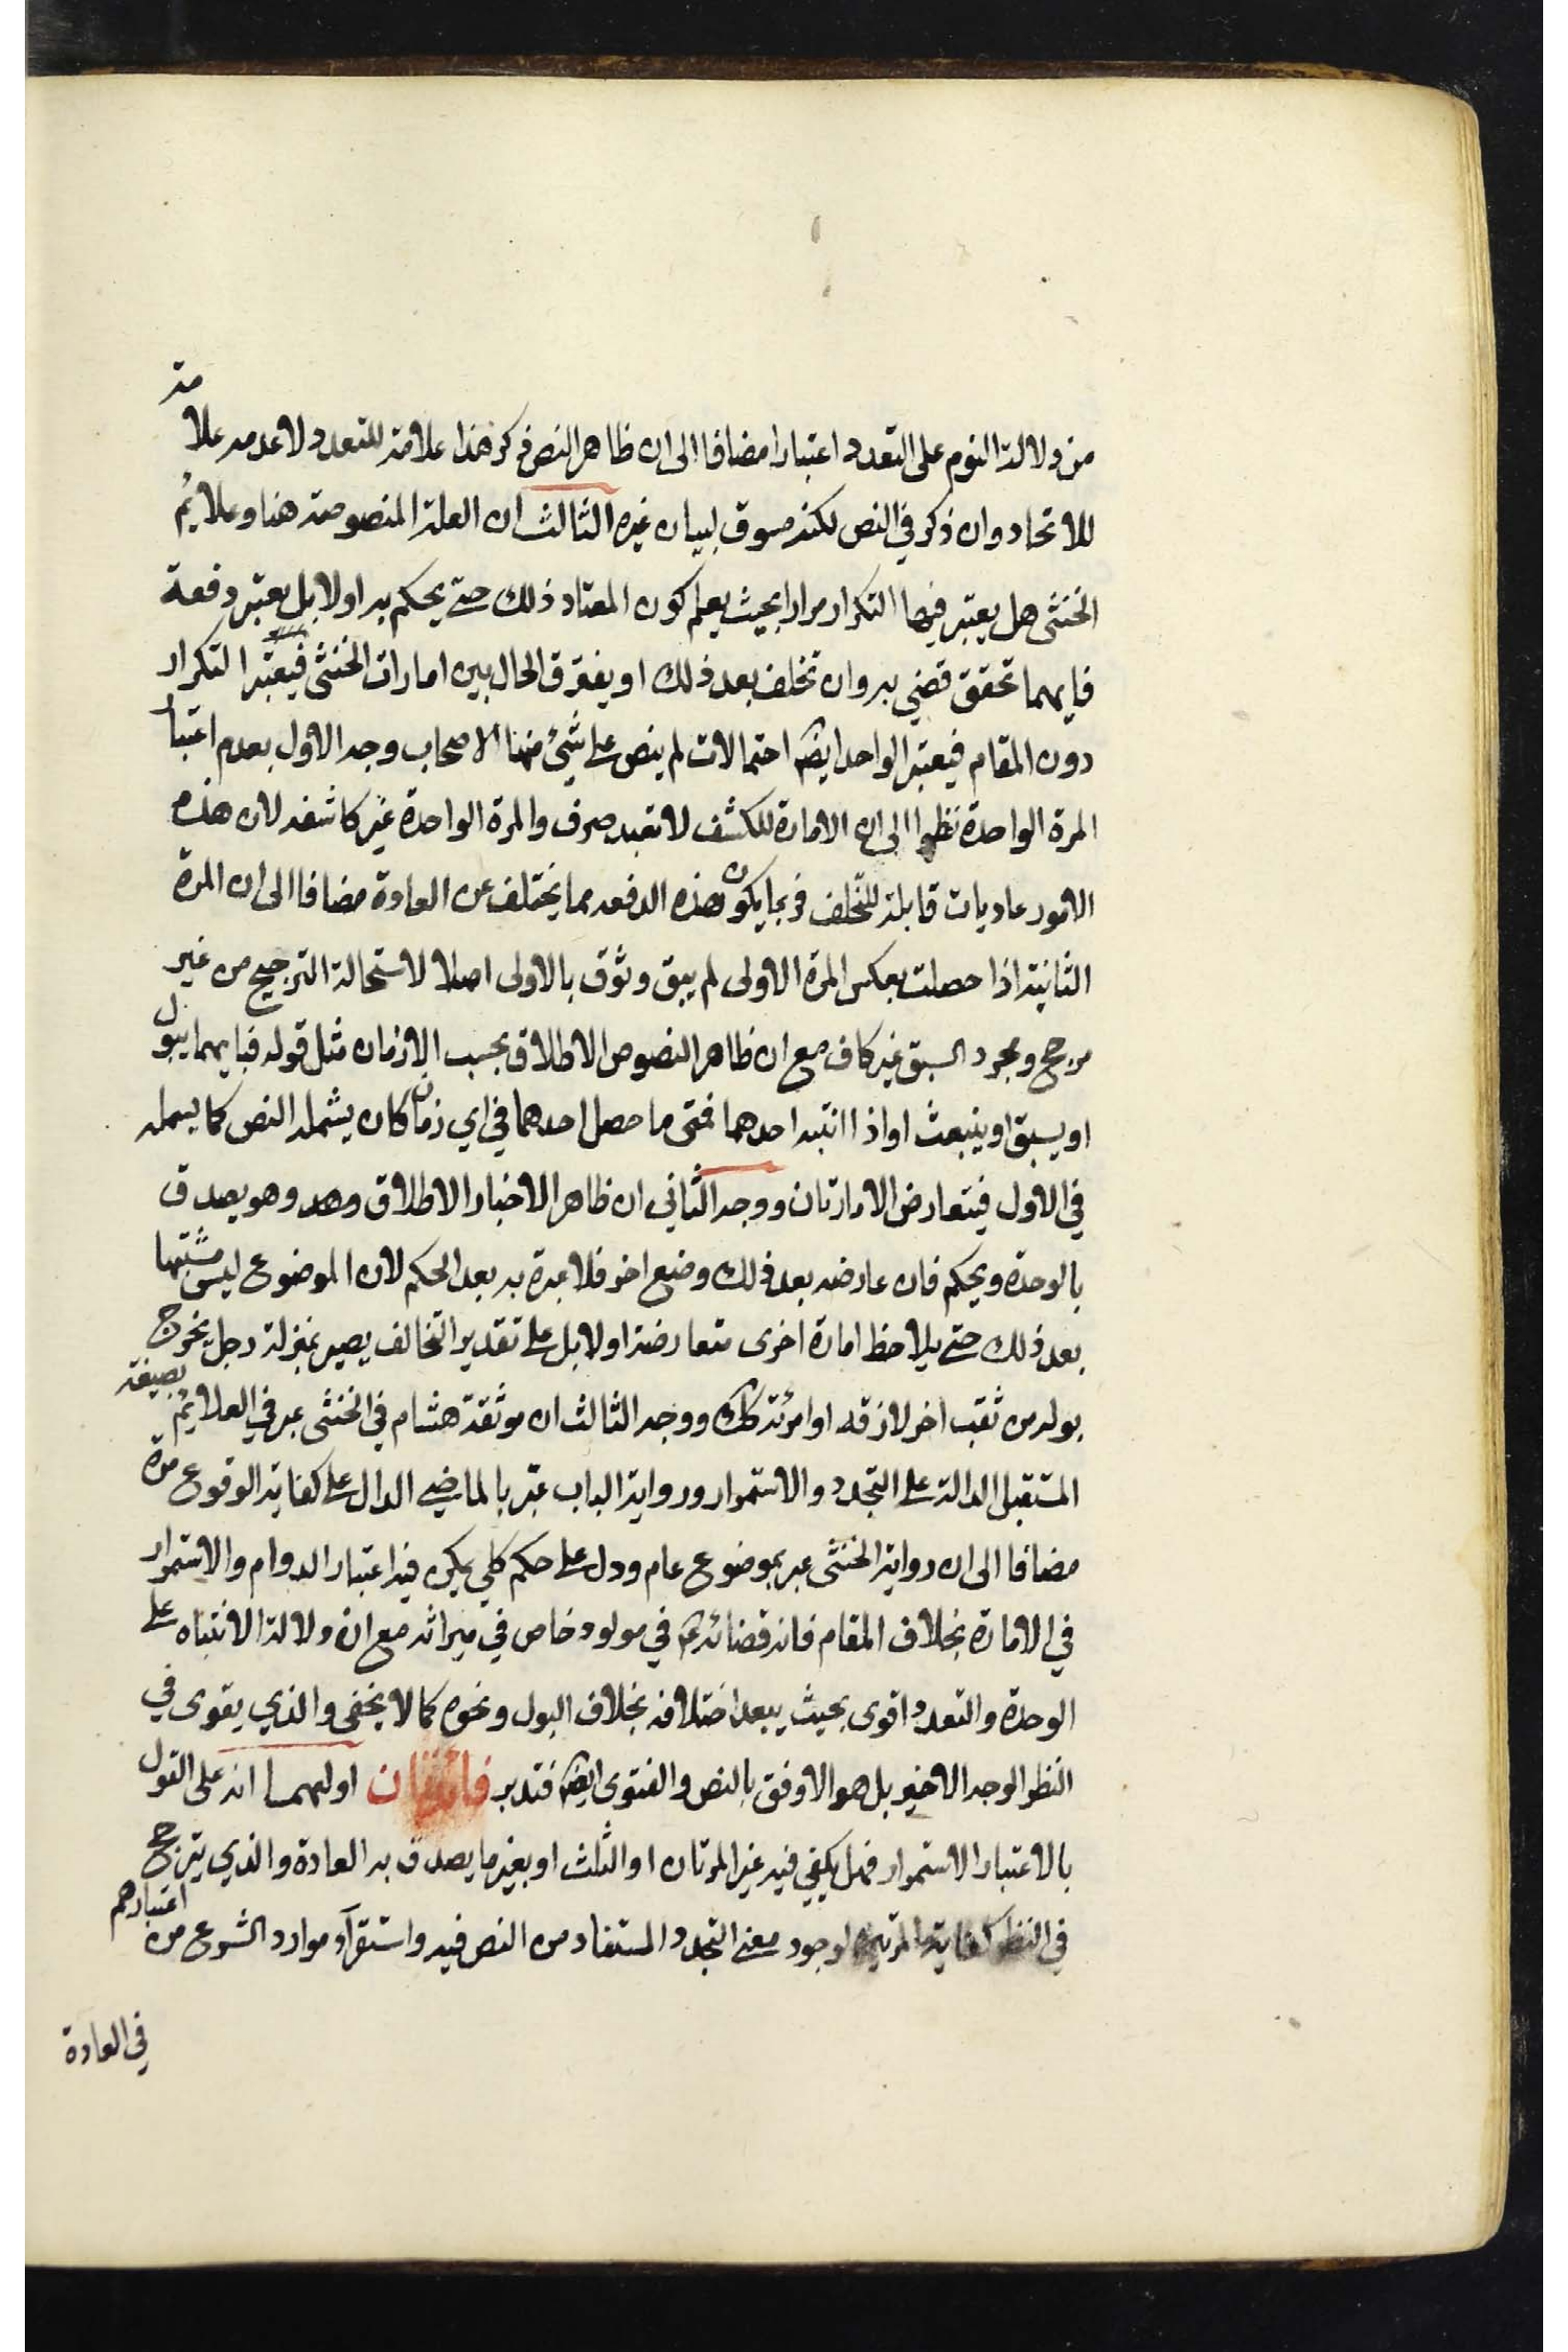 من دلالة النوم على التعدد اعتبارا مضافا الى ان ظاهر النص ذكر هذا علامة للتعدد لا عدمه علامة
للاتحاد وان ذكر في النص لكنه مسوق لبيان غيره الثالث ان العلة المنصوصة هنا وعلايم
الخنثى هل يعتبر فيها التكرار مرارا بحيث يعلم كون المعتاد ذلك حتى يحكم به اولا بل يعتبر دفعة
فايهما تحقق قضي به وان تخلف بعد ذلك او يفرق الحال بين امارات الخنثى فيعتبر التكرار
دون المقام فيعتبر الواحد ايضا احتمالات لم ينص على شيئ منها الاصحاب وجه الاول بعدم اعتبار
المرة الواحدة نظرا الى ان الامارة للكشف لا تعبد صرف والمرة الواحدة غير كاشفه لان هذه
الامور عاديات قابلة للتخلف فربما يكون هذه الدفعه مما يختلف عن العادة مضافا الى ان المرة
الثانية اذا حصلت بعكس المرة الاولى لم يبق وثوق بالاولى اصلا لاستحالة الترجيح من غير
مرجح ومجرد السبق غير كاف مع ان ظاهر النصوص الاطلاق بحسب الازمان مثل قوله فبايهما يبول
او يسبق او ينبعث او اذا انتبه احدهما فمتى ما حصل احدهما في اي زمان كان يشمله النص كما يسمله
في الاول فيتعارض الامارتان ووجه الثاني ان ظاهر الاخبار الاطلاق وهو يصدق
بالوحدة ويحكم فان عارضه بعد ذلك وضع اخر فلا عبرة به بعد الحكم لان الموضوع ليس مشتبها
بعد ذلك حتى يلاحظ امارة اخرى متعارضة اولا بل على تقدير التخالف يصير بمنزلة رجل يخرج
بوله من ثقب اخر لازقه او امرئة كك ووجه الثالث ان موثقة هشام في الخنثى عبر في العلايم بصيغة
المستقبل الدالة على التجدد والاستمرار ورواية الباب عبر بالماضي الدال على كفاية الوقوع مرة
مضافا الى ان رواية الخنثى عبر بموضوع عام ودل على حكم كلي يمكن فيه اعتبار الدوام والاستمرار
في الامارة بخلاف المقام فانه قضائه في مولود خاص في ميراثه مع ان دلالة الانتباه على
الوحدة والتعدد اقوى بحيث يبعد اختلافه بخلاف البول ونحوه كما لا يخفى والذي يقوى في
النظر الوجه الاخير بل هو الاوفق بالنص والفتوى ايضا فتدبر فائدتان اوليهما انه على القول
بالاعتبار الاستمرار فهل يكفي فيه غير المرتان او الثلث او بغير ما يصدق به العادة والذي يترجح
في النظر كفاية المرتين لوجود معنى التجدد المستفاد من النص فيه واستقرآء موارد الشرع من اعتبارهم
في العادة